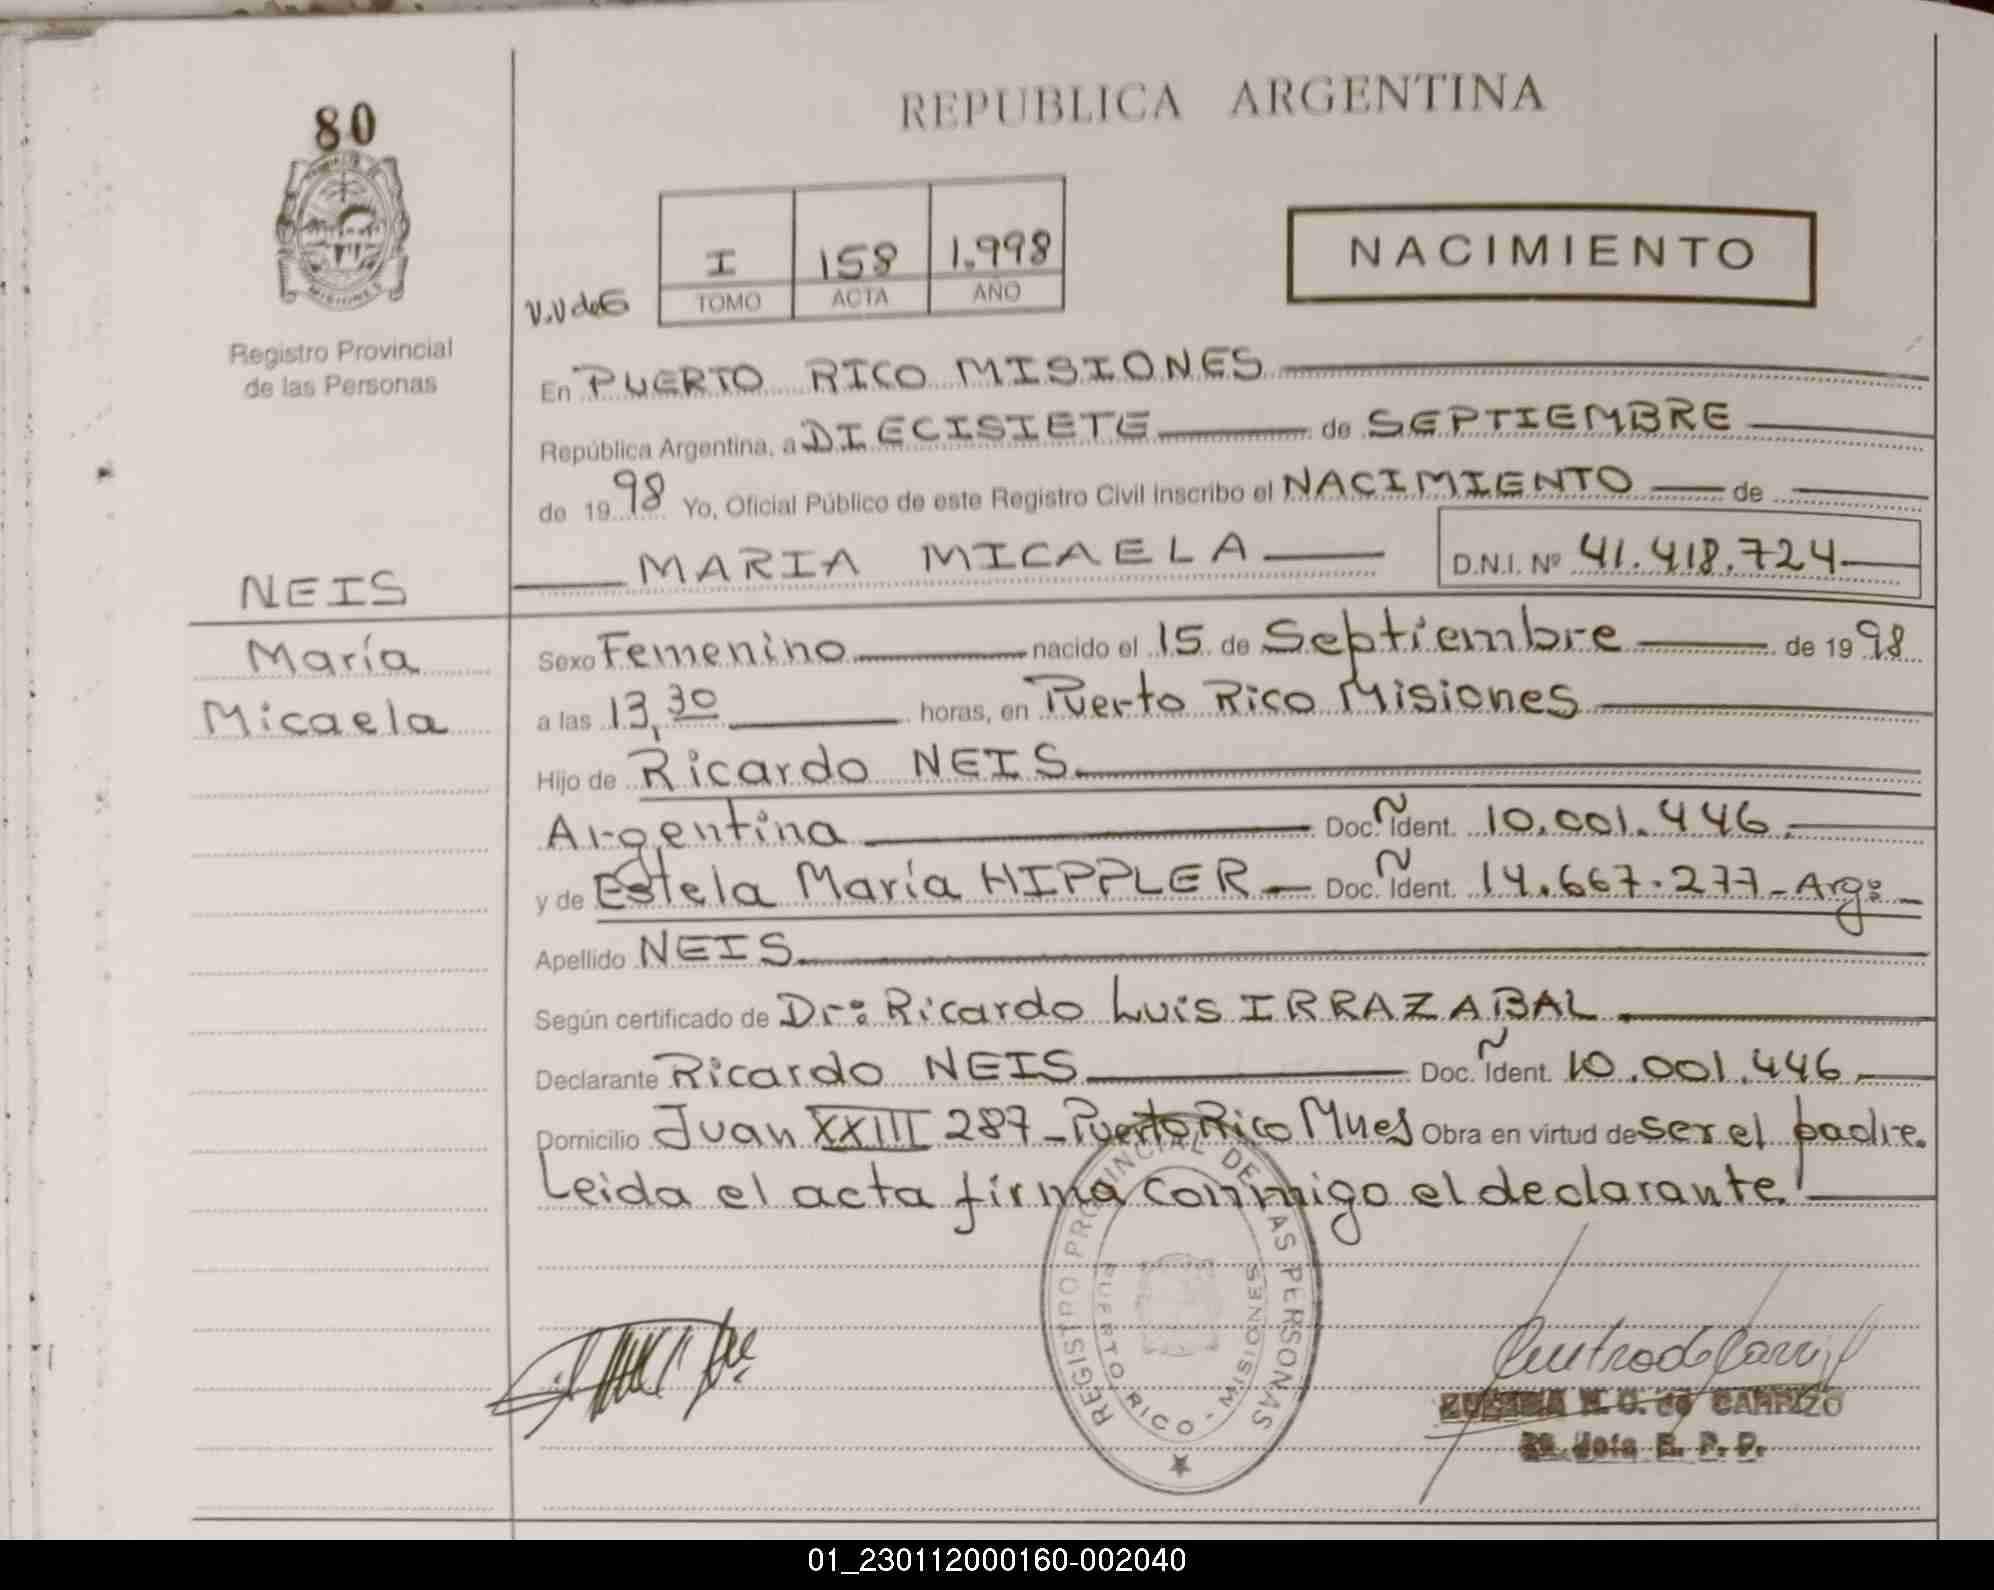 80
REPUBLICA ARGENTINA
I 158 1.998
TOMO ACTA AÑO
NACIMIENTO
MISIONES
Registro Provincial
de las Personas
En PUERTO RICO MISIONES
República Argentina, a DIECISIETE de SEPTIEMBRE
de 1998 Yo, Oficial Público de este Registro Civil inscribo el NACIMIENTO de
MARIA MICAELA D.N.I. Nº 41.418.724
NEIS
María
Micaela
Sexo Femenino nacido el 15 de Septiembre de 1998
a las 13,30 horas, en Puerto Rico Misiones
Hijo de Ricardo NEIS
Argentina Doc. Ident. 10.001.446
y de Estela María HIPPLER Doc. Ident. 14.667.277 - Arg:
Apellido NEIS
Según certificado de Dr: Ricardo Luis IRRAZABAL
Declarante Ricardo NEIS Doc. Ident. 10.001.446
Domicilio Juan XXIII 287 - Puerto Rico Mnes Obra en virtud de ser el padre.
Leida el acta firma conmigo el declarante.
REGISTRO PROVINCIAL DE LAS PERSONAS
PUERTO RICO - MISIONES
de CARRIZO
01_230112000160-002040